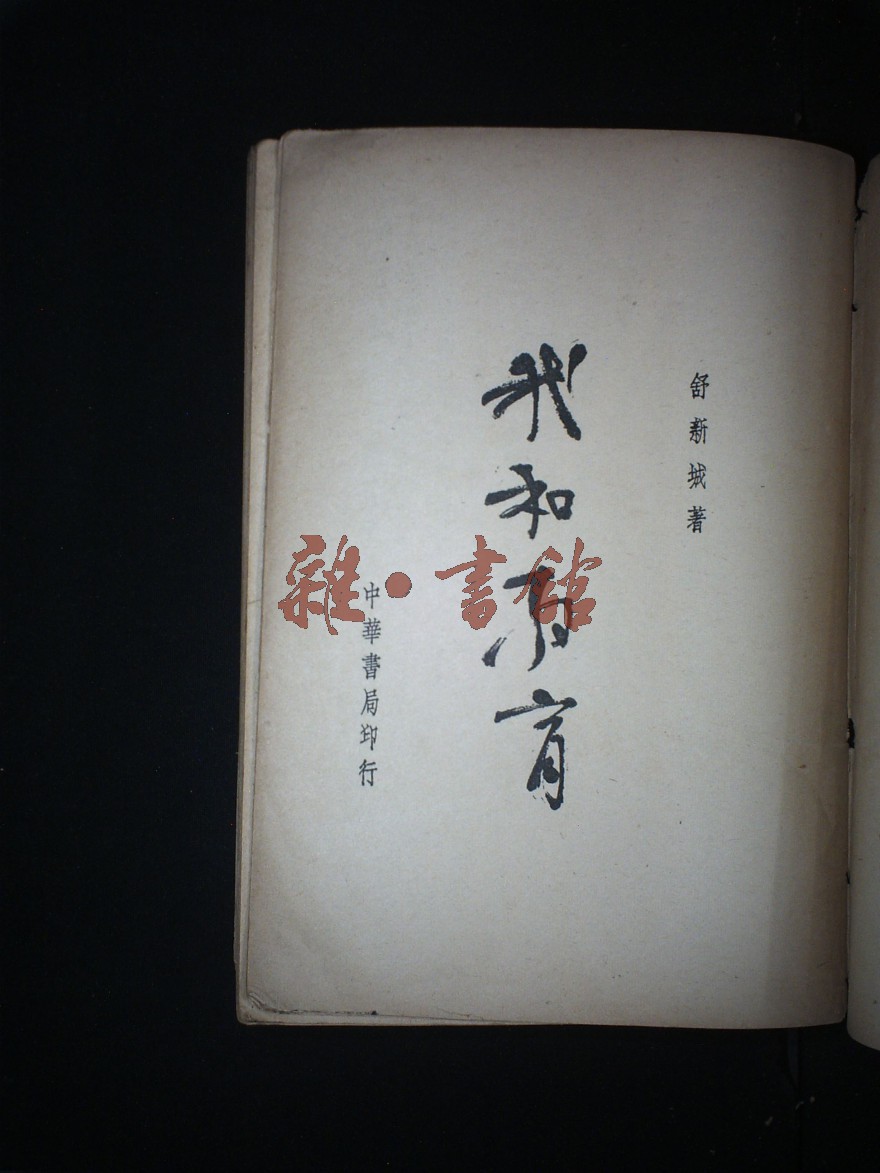 舒新城著
我和教育
中華書局印行
雜·書館